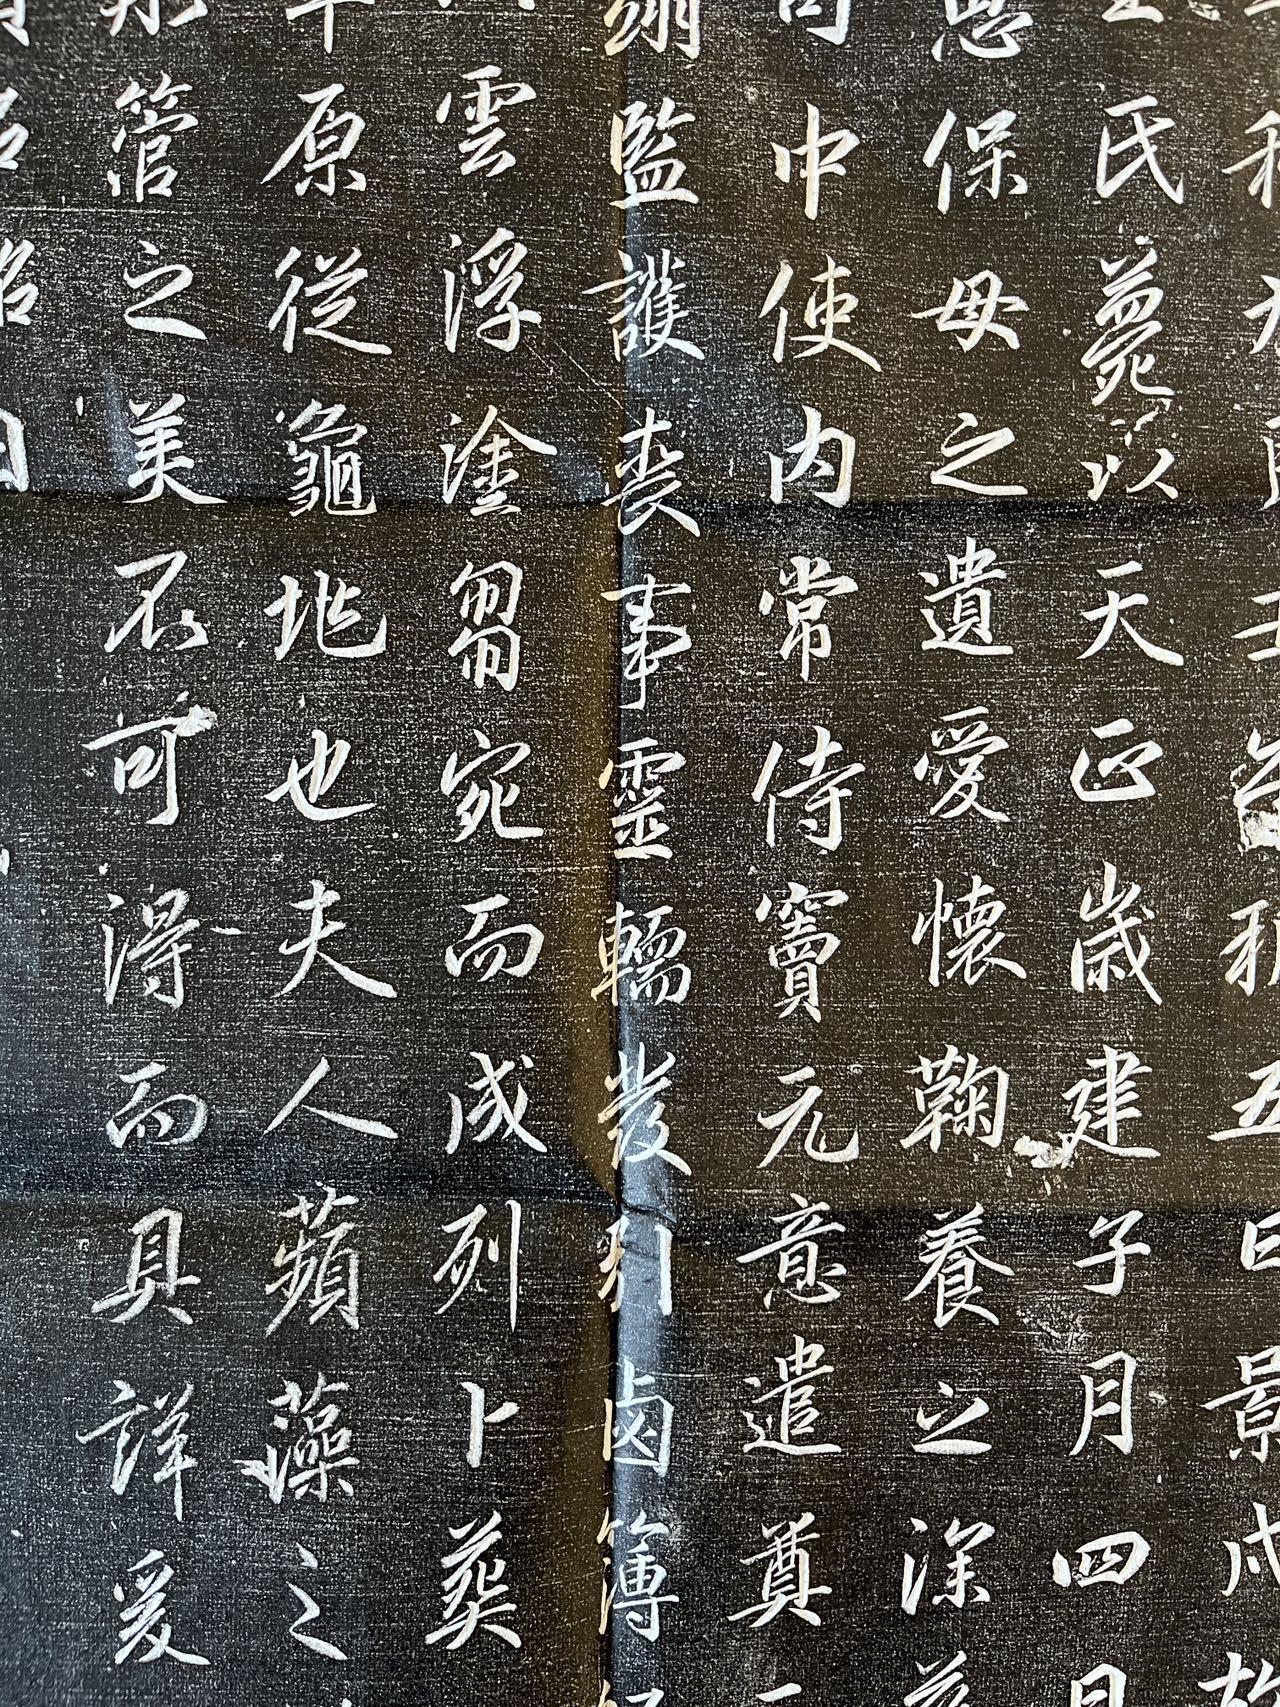 五日景戌
氏薨以天正歲建子月四日
恩保母之遺愛懷鞠養之深
中使內常侍竇元意遣奠
監護喪事靈輀發引鹵簿
雲浮塗芻宛而成列卜葬
原從龜兆也夫人蘋藻之
管之美不可得而具詳爰